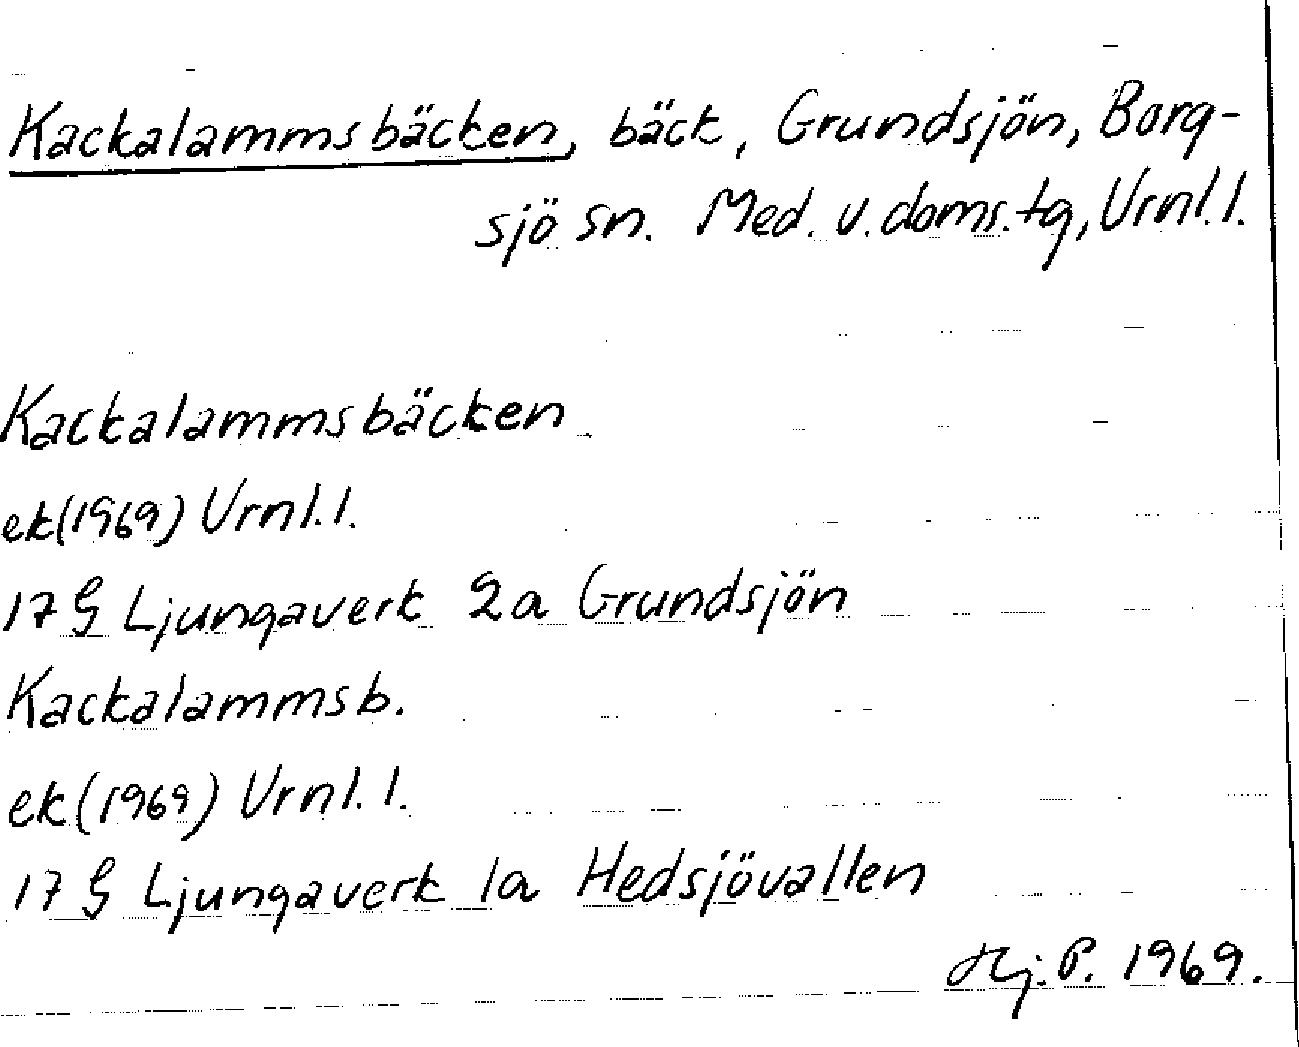 Kackalammsbäcken, bäck, Grundsjön, Borg-
sjö sn. Med. v. doms.tg, Vrnl.l.
Kackalammsbäcken
ek(1969) Vrnl.l.
17 G Ljungaverk 2a Grundsjön
Kackalammsb.
ek(1969) Vrnl.l.
17 G Ljungaverk 1a Hedsjövallen
Hj.P. 1969.